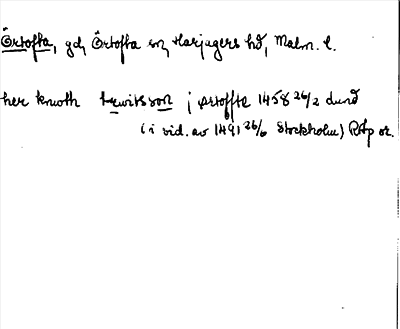 Örtofta, gd, Örtofta sn, Harjagers hd, Malm. l.
her knwth trwitsson j ørtoffte 1458 26/2 Lund
(i vid. av 1491 26/6 Stockholm) RAp or.